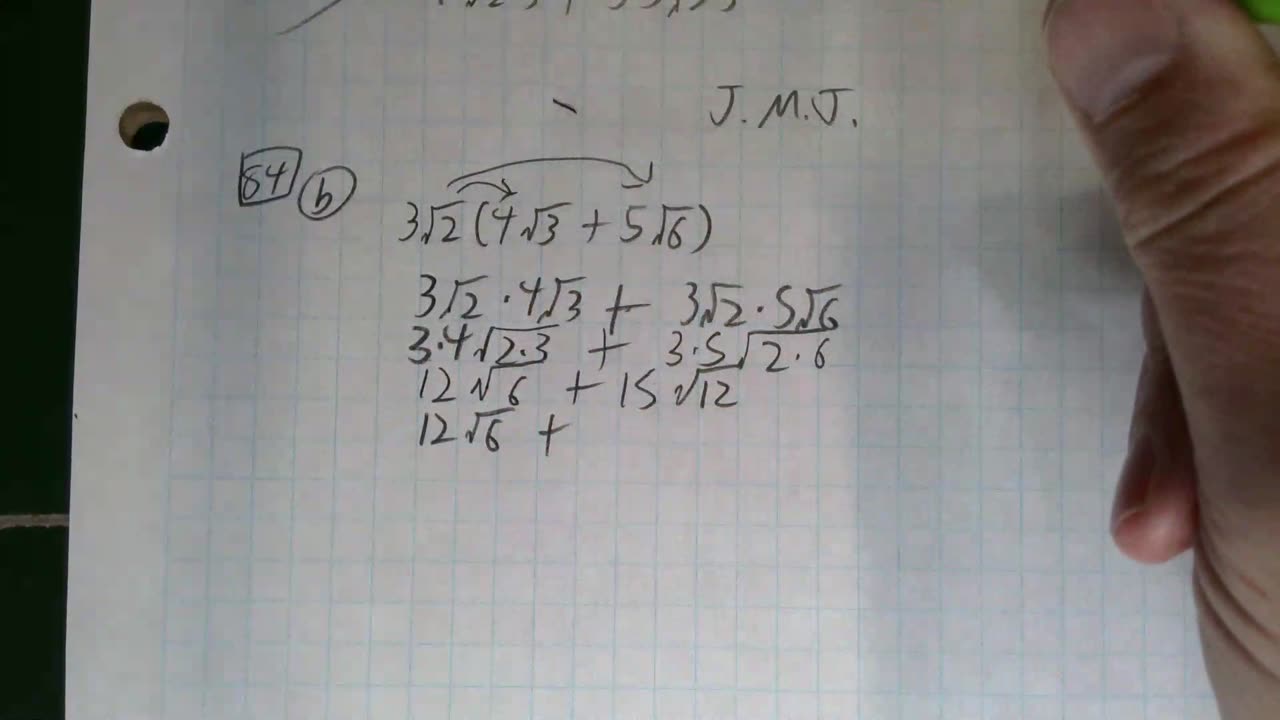 J. M. J.
64 b
3√2(4√3 + 5√6)
3√2 · 4√3 + 3√2 · 5√6
3·4√2·3 + 3·5√2·6
12√6 + 15√12
12√6 +